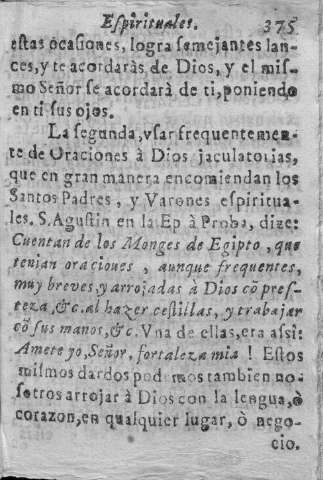 Espirituales. 375
estas ocasiones, logra semejantes lan-
ces, y te acordaràs de Dios, y el mis-
mo Señor se acordarà de ti, poniendo
en ti sus ojos.
La segunda, vsar frequentemen-
te de Oraciones à Dios jaculatorias,
que en gran manera encomiendan los
Santos Padres, y Varones espiritua-
les. S. Agustin en la Ep à Proba, dize:
Cuentan de los Monges de Egipto, que
tenian oraciones, aunque frequentes,
muy breves, y arrojadas à Dios cõ pres-
teza, &c. al hazer cestillas, y trabajar
cõ sus manos, &c. Vna de ellas, era assi:
Amete yo, Señor, fortaleza mia! Estos
mismos dardos podemos tambien no-
sotros arrojar à Dios con la lengua, ò
corazon, en qualquier lugar, ò nego-
cio.